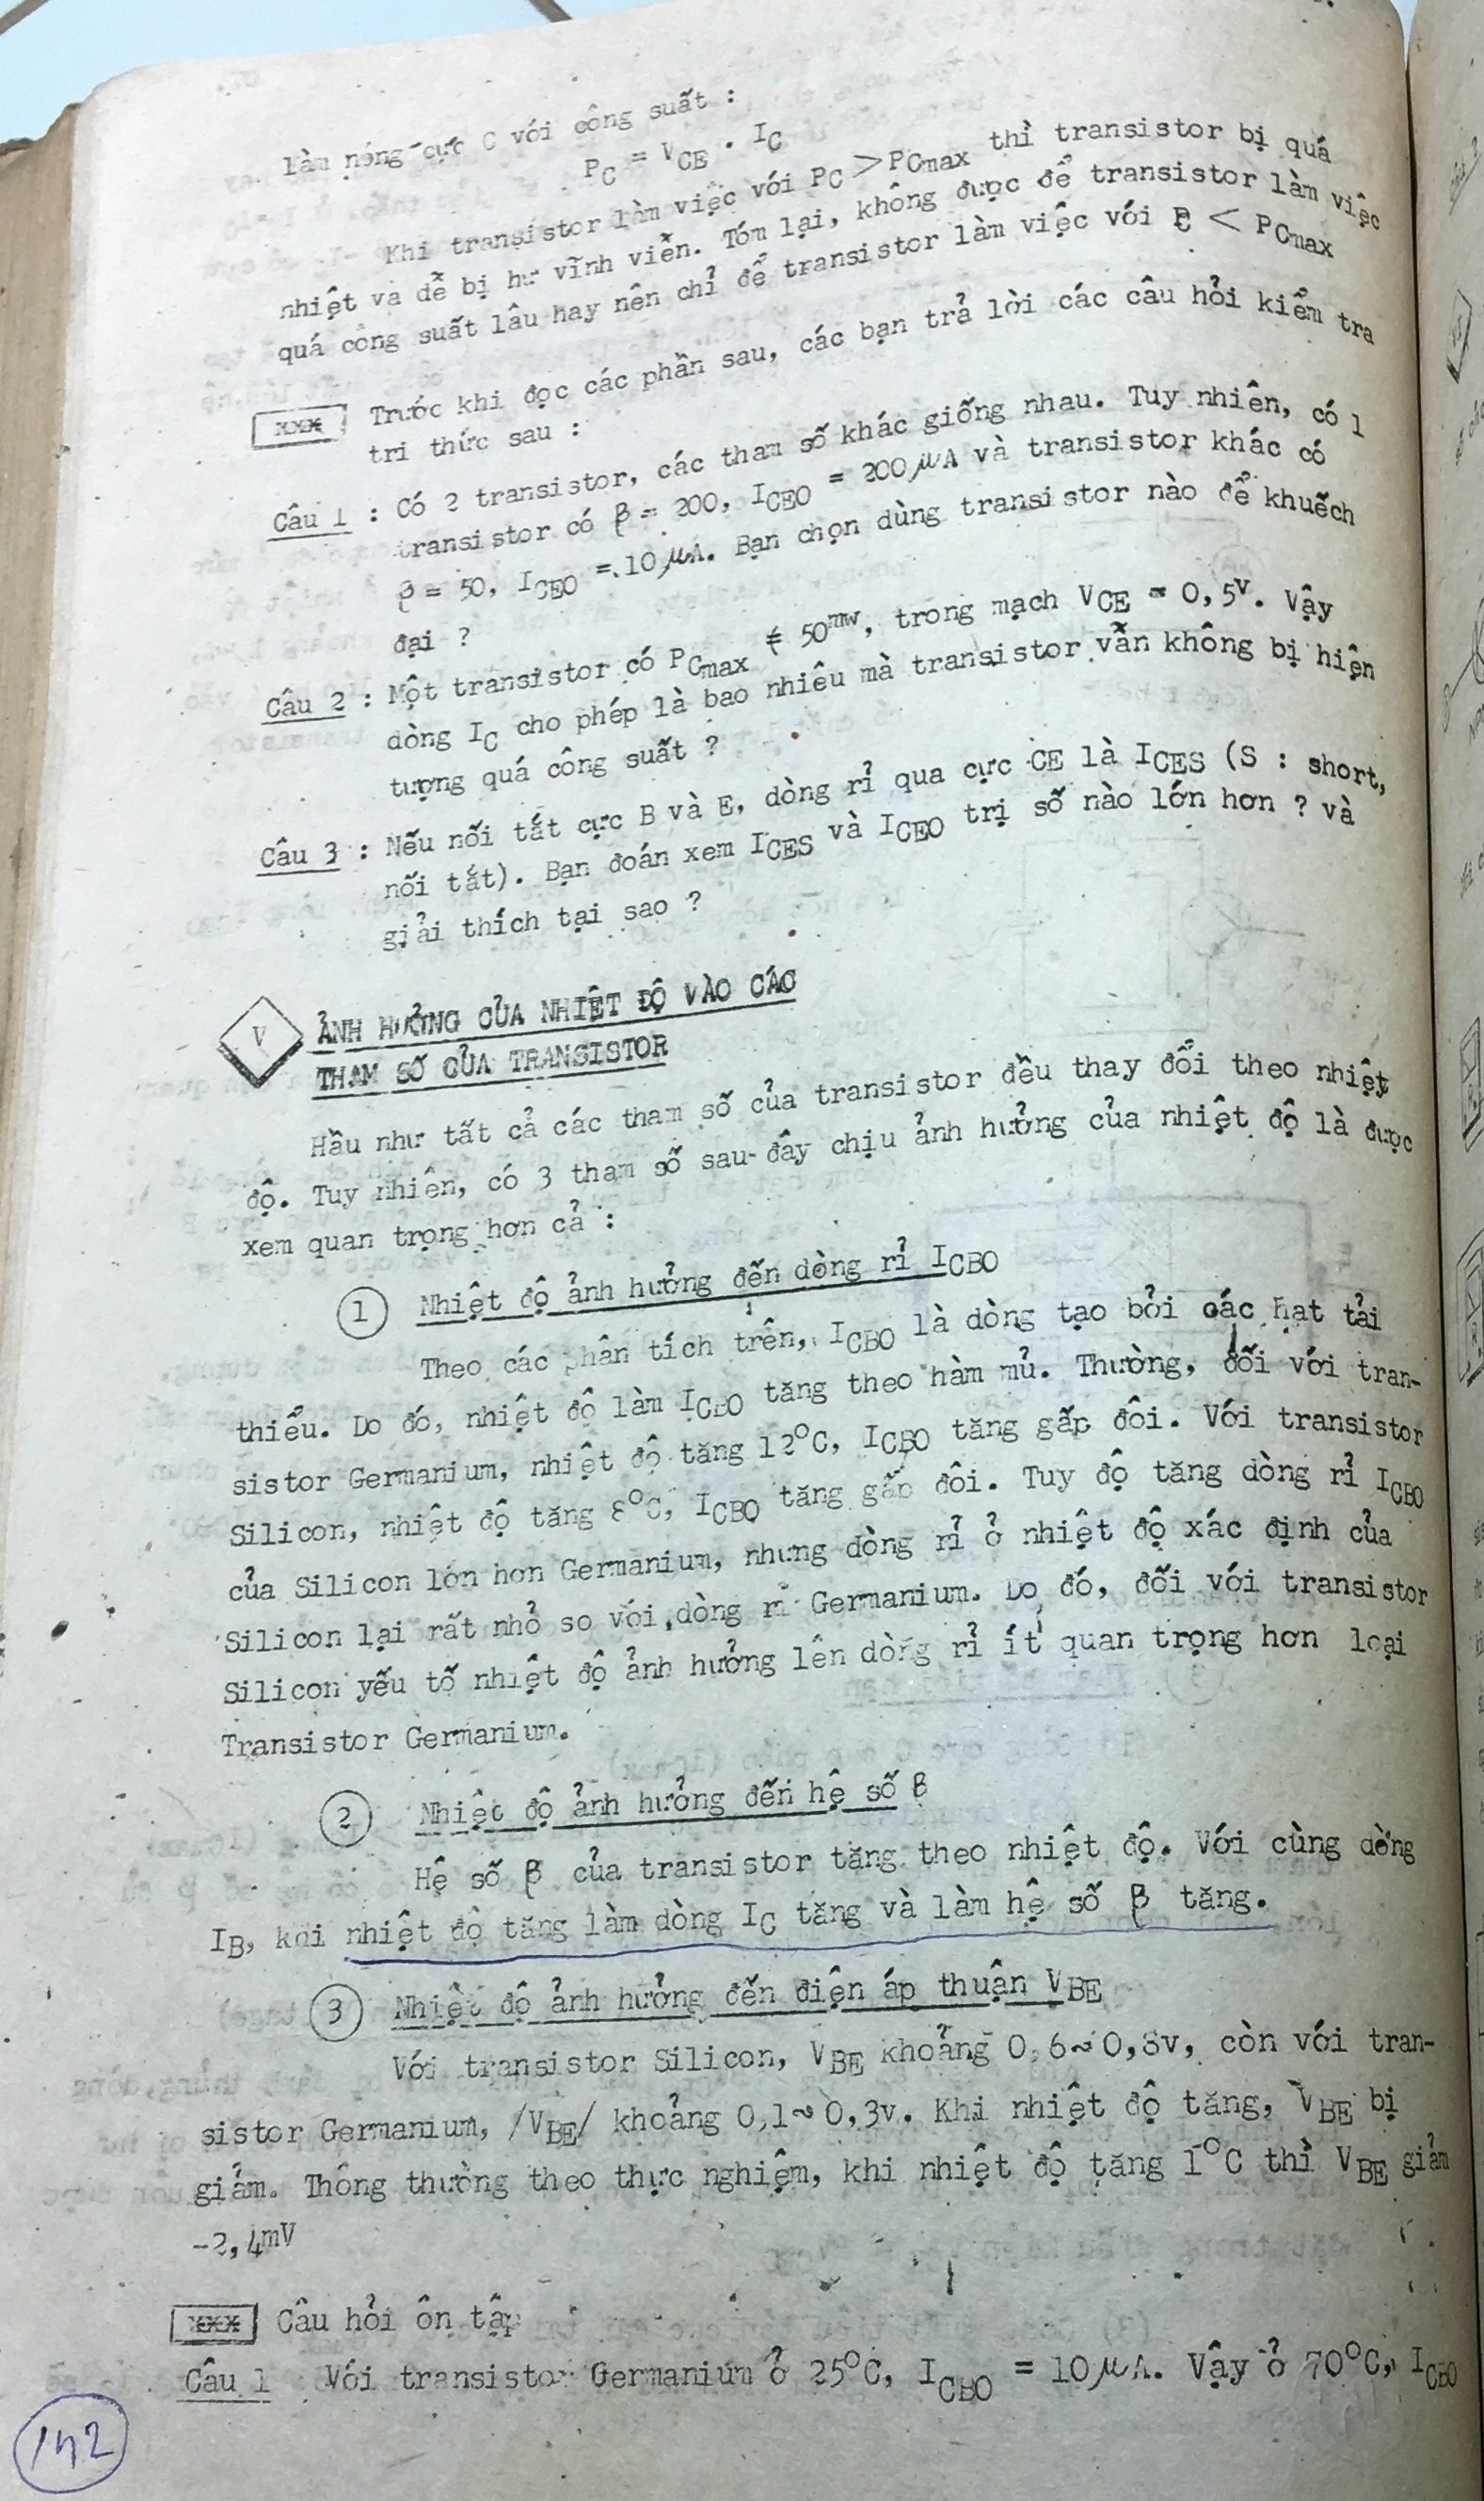 làm nóng cực C với công suất :
PC = VCE . IC
Khi transistor làm việc với PC > PCmax thì transistor bị quá
nhiệt và dễ bị hư vĩnh viễn. Tóm lại, không được để transistor làm việc
quá công suất lâu hay nên chỉ để transistor làm việc với PC < PCmax
xxx Trước khi đọc các phần sau, các bạn trả lời các câu hỏi kiểm tra
tri thức sau :
Câu 1 : Có 2 transistor, các tham số khác giống nhau. Tuy nhiên, có 1
transistor có β = 200, ICEO = 200 μA và transistor khác có
β = 50, ICEO = 10 μA. Bạn chọn dùng transistor nào để khuếch
đại ?
Câu 2 : Một transistor có PCmax = 50mw, trong mạch VCE = 0,5v. Vậy
dòng IC cho phép là bao nhiêu mà transistor vẫn không bị hiện
tượng quá công suất ?
Câu 3 : Nếu nối tắt cực B và E, dòng rỉ qua cực CE là ICES (S : short,
nối tắt). Bạn đoán xem ICES và ICEO trị số nào lớn hơn ? và
giải thích tại sao ?
V ẢNH HƯỞNG CỦA NHIỆT ĐỘ VÀO CÁC
THAM SỐ CỦA TRANSISTOR
Hầu như tất cả các tham số của transistor đều thay đổi theo nhiệt
độ. Tuy nhiên, có 3 tham số sau đây chịu ảnh hưởng của nhiệt độ là được
xem quan trọng hơn cả :
1 Nhiệt độ ảnh hưởng đến dòng rỉ ICBO
Theo các phân tích trên, ICBO là dòng tạo bởi các hạt tải
thiểu. Do đó, nhiệt độ làm ICBO tăng theo hàm mủ. Thường, đối với tran-
sistor Germanium, nhiệt độ tăng 12°C, ICBO tăng gấp đôi. Với transistor
Silicon, nhiệt độ tăng 8°C, ICBO tăng gấp đôi. Tuy độ tăng dòng rỉ ICBO
của Silicon lớn hơn Germanium, nhưng dòng rỉ ở nhiệt độ xác định của
Silicon lại rất nhỏ so với dòng rỉ Germanium. Do đó, đối với transistor
Silicon yếu tố nhiệt độ ảnh hưởng lên dòng rỉ ít quan trọng hơn loại
Transistor Germanium.
2 Nhiệt độ ảnh hưởng đến hệ số β
Hệ số β của transistor tăng theo nhiệt độ. Với cùng dòng
IB, khi nhiệt độ tăng làm dòng IC tăng và làm hệ số β tăng.
3 Nhiệt độ ảnh hưởng đến điện áp thuận VBE
Với transistor Silicon, VBE khoảng 0,6~0,8v, còn với tran-
sistor Germanium, /VBE/ khoảng 0,1~0,3v. Khi nhiệt độ tăng, VBE bị
giảm. Thông thường theo thực nghiệm, khi nhiệt độ tăng 1°C thì VBE giảm
-2,4mV
xxx Câu hỏi ôn tập
Câu 1 Với transistor Germanium ở 25°C, ICBO = 10 μA. Vậy ở 70°C, ICBO
142